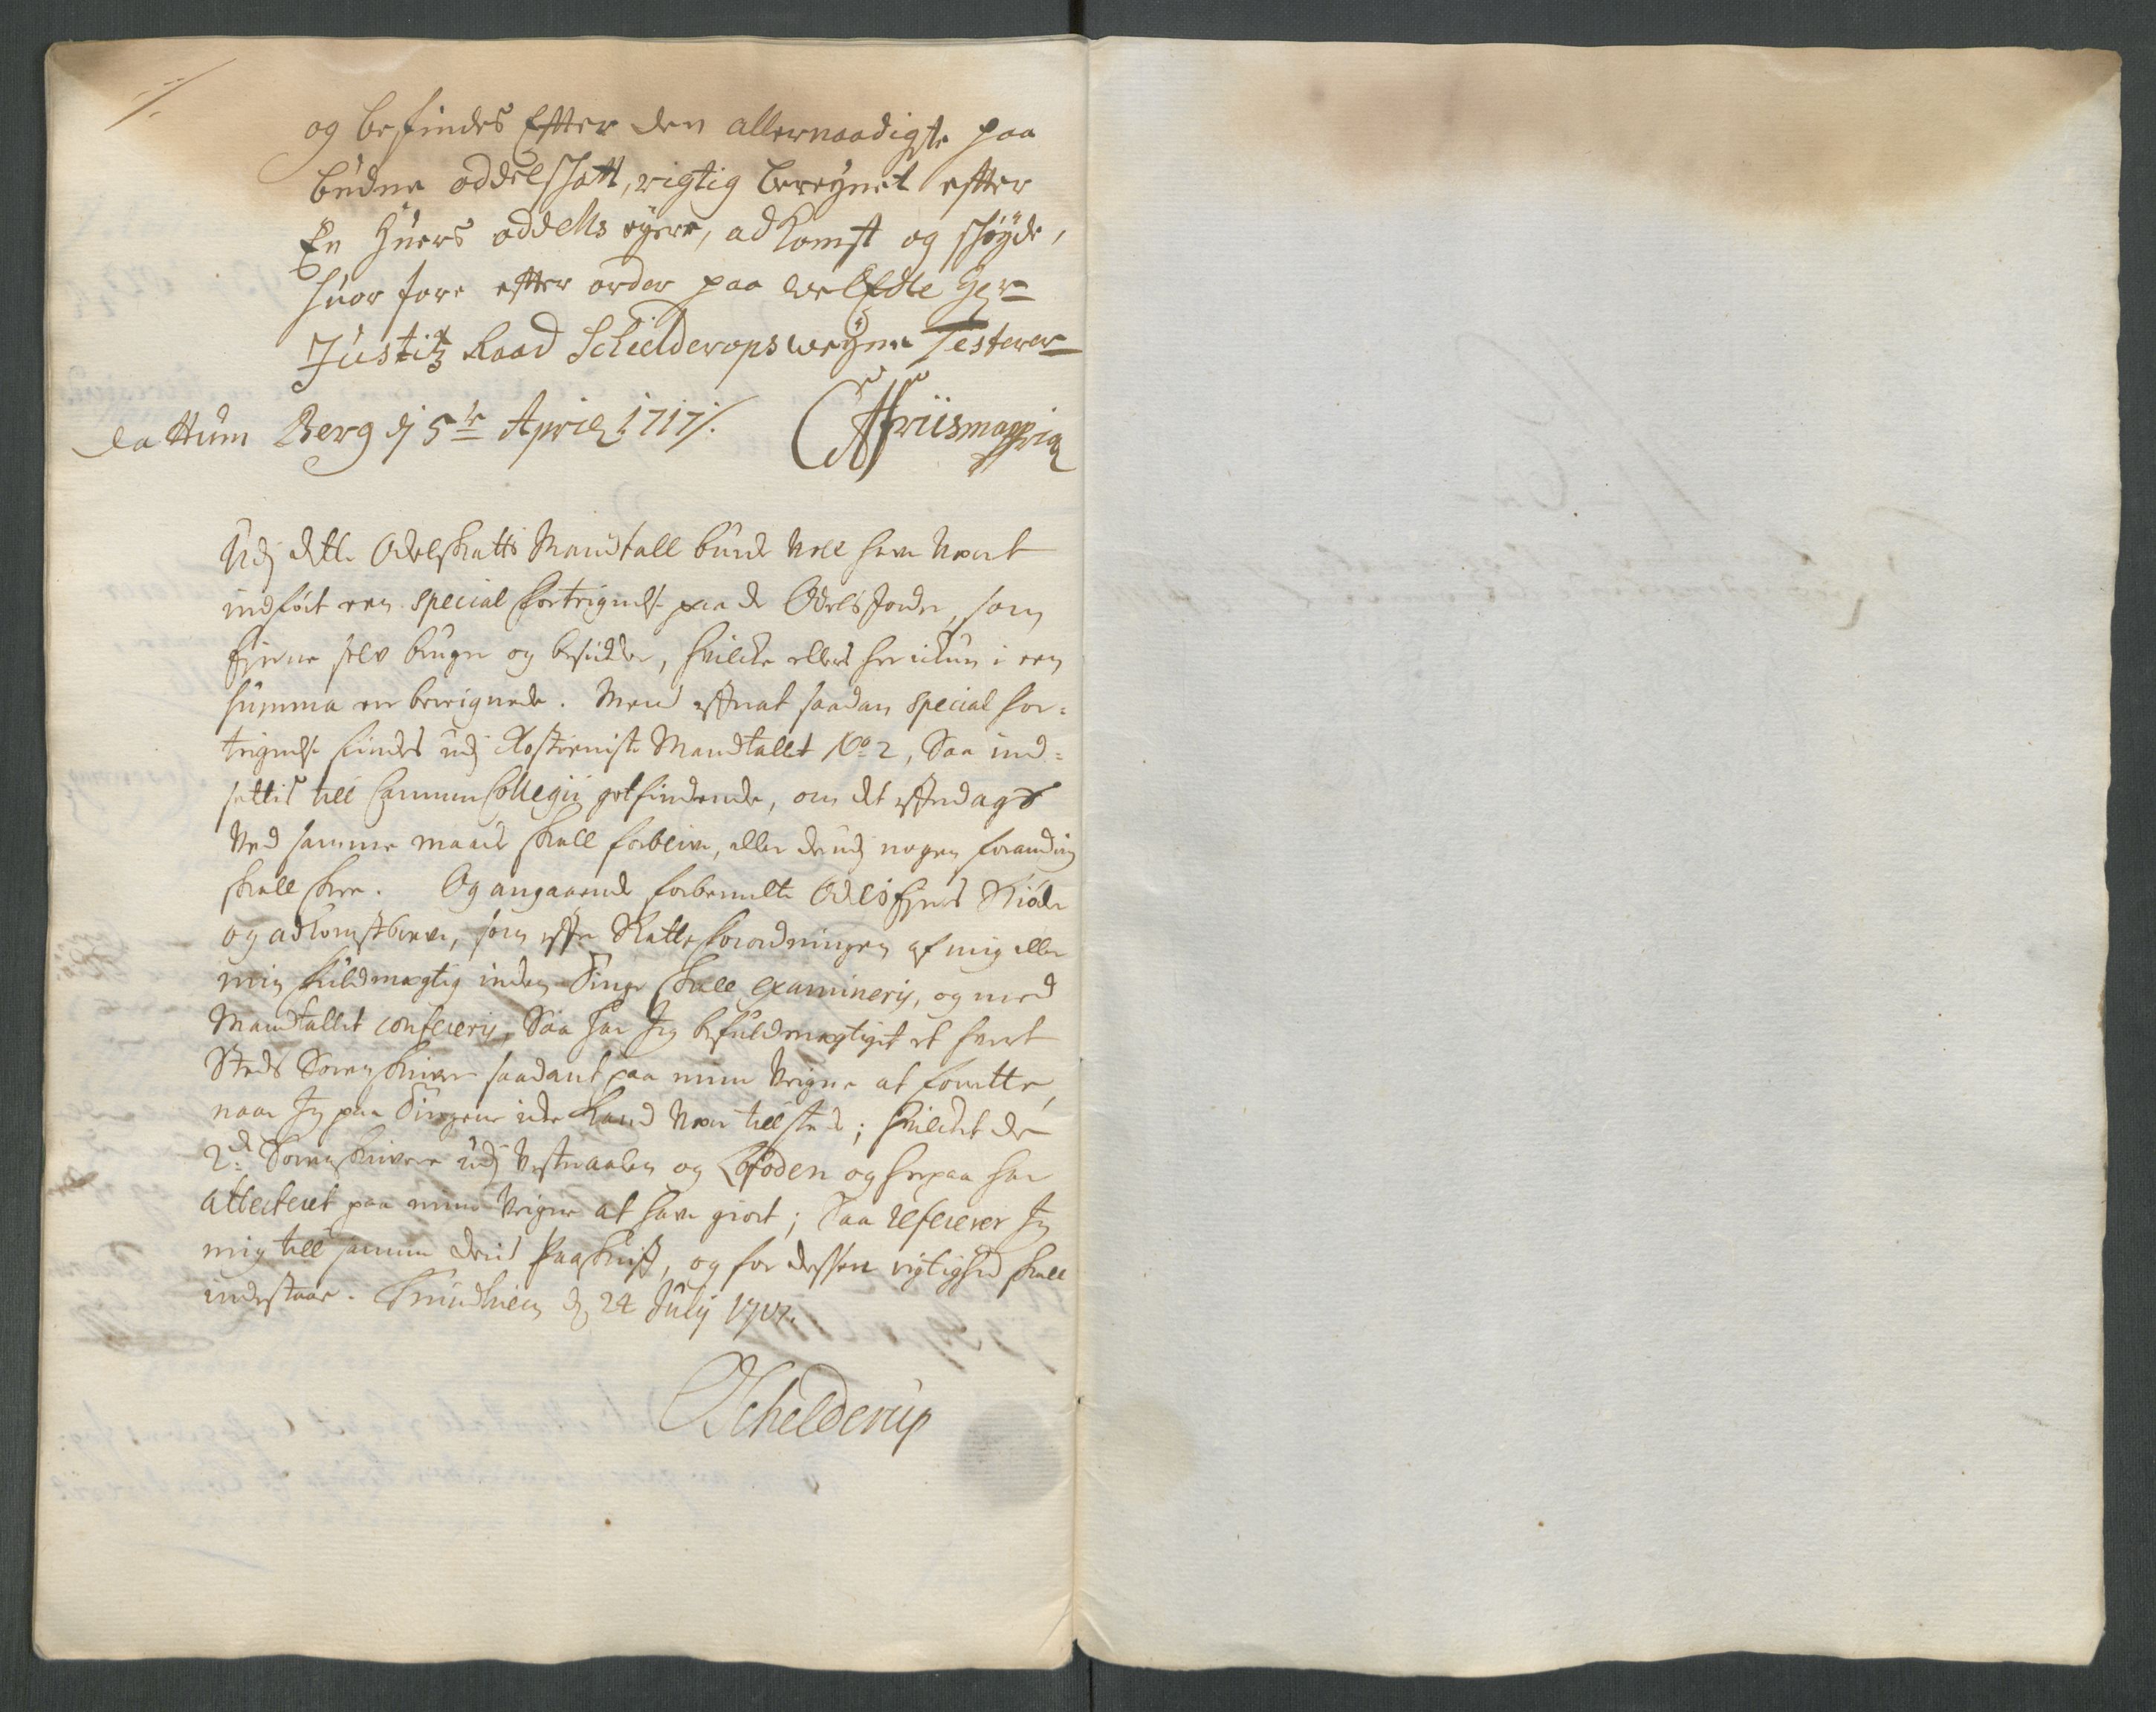 og befindes Efter den allernaadigste paa
budne oddelschatt, rigtig bereynet efter
En huers oddells eyere, adkomst og schøyde,
huorfore efter order paa welEdle Her
Justitz Raad Schielderops weyne Testerer
Dattum Berg dj 5te April 1717/.
Udj dette Odelskatts Mandtall burde Well have Wæret
indført een special fortegnelse paa de Odels Jorder, som
Ejerne selv bruger og besidder, hvilke ellers her ickun i een
summa er beregnede. Mend efterat saadan special for-
tegnelse findes udj Rostieniste Mandtallet No 2, Saa ind-
settis till Cammer Collegii gotfindende, om det efterdags
Ved samme maade skall forblive, eller derudj nogen forandring
skall skee. Og angaaende forbemelte Odels Ejeres Skiøder
og adkomstbreve, som efter Skatte Forordningen af mig eller
min fuldmægtig inden Tinge skall examineris, og med
Mandtallet confereris, Saa har Jeg befuldmægtiget et hvert
Steds Sorenskriver saadant paa mine Veigne at forrette,
naar Jeg paa Tingene icke kand Være tillstede; hvilcket de
2de Sorenskrivere udj Vesteraalen og Lofoden og herpaa har
attesteret paa mine Veigne at have giort; Saa refererer Jeg
mig till samme deris Paaskrift, og for dessen rigtighed skall
indestaae. Trundhiem d 24 July 1717.
Schelderup